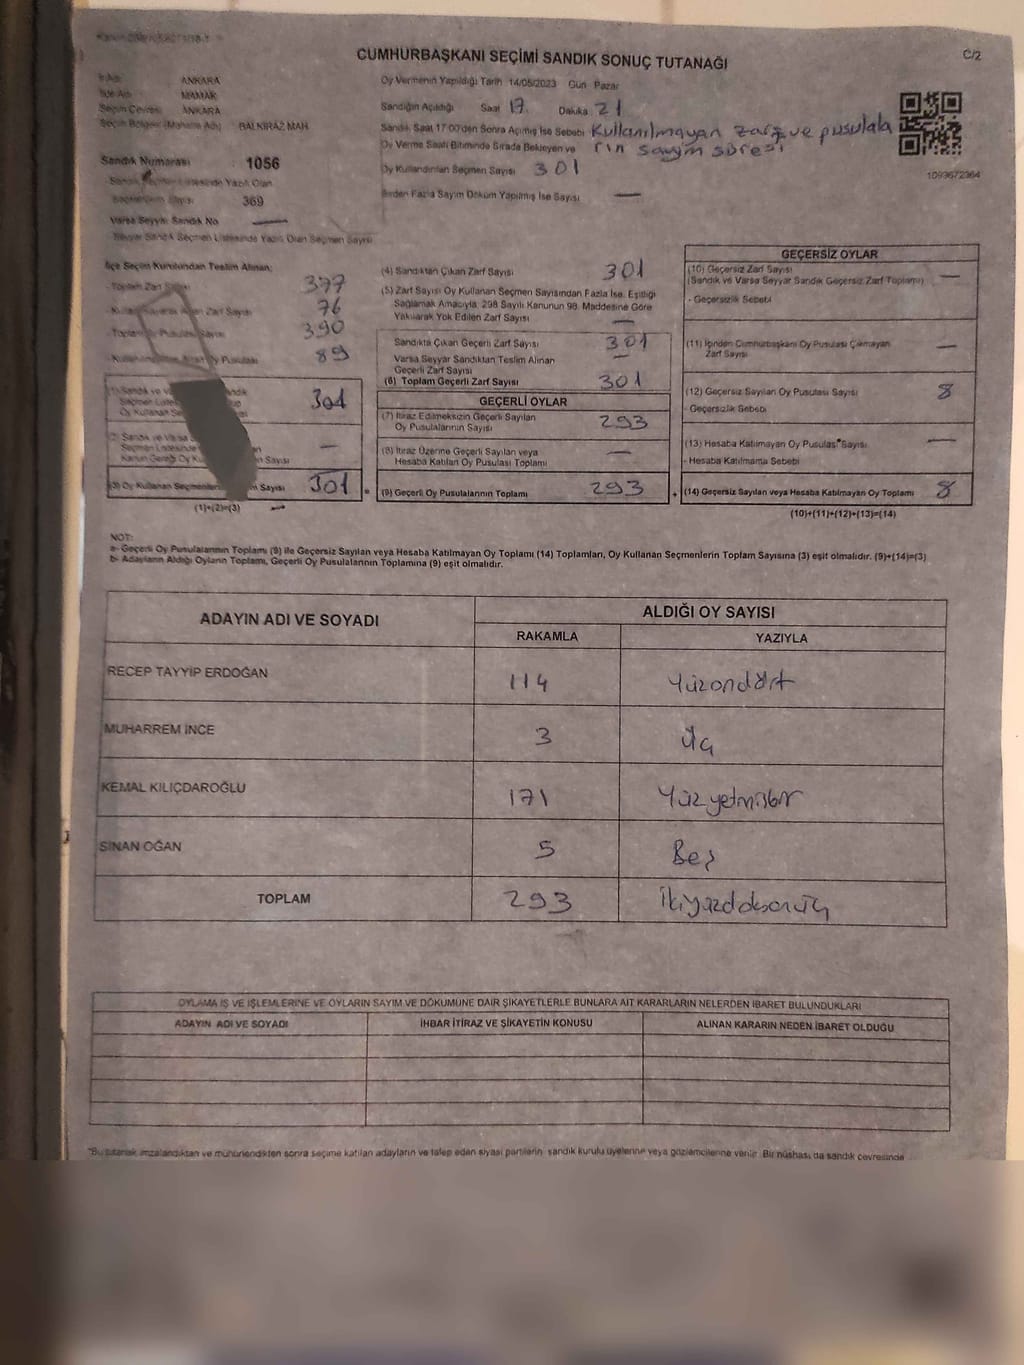 CUMHURBAŞKANI SEÇİMİ SANDIK SONUÇ TUTANAĞI
C/2
İli Adı ANKARA
İlçe Adı MAMAK
Seçim Çevresi ANKARA
Seçim Bölgesi (Mahalle Adı) BALKİRAZ MAH
Sandık Numarası 1056
Sandık Seçmen Listesinde Yazılı Olan
Seçmenlerin Sayısı 369
Varsa Seyyar Sandık No —
Seyyar Sandık Seçmen Listesinde Yazılı Olan Seçmen Sayısı
Oy Vermenin Yapıldığı Tarih 14/05/2023 Gün Pazar
Sandığın Açıldığı Saat 17 Dakika 21
Sandık Saat 17:00'den Sonra Açılmış İse Sebebi Kullanılmayan zarf ve pusulala
Oy Verme Saati Bitiminde Sırada Bekleyen ve rın sayım süresi
Oy Kullandırılan Seçmen Sayısı 301
Birden Fazla Sayım Döküm Yapılmış İse Sayısı —
1093672364
İlçe Seçim Kurulundan Teslim Alınan;
- Toplam Zarf Sayısı 377
- Kullanılmayarak Artan Zarf Sayısı 76
- Toplam Oy Pusulası Sayısı 390
- Kullanılmayarak Artan Oy Pusulası 89
(1) Sandık ve Sandık
Seçmen Listesi
Oy Kullanan Se 301
(2) Sandık ve Varsa
Seçmen Listesinde
Kanun Gereği Oy Ku an Sayısı —
(3) Oy Kullanan Seçmenlerin Sayısı 301
(1)+(2)=(3)
(4) Sandıktan Çıkan Zarf Sayısı 301
(5) Zarf Sayısı Oy Kullanan Seçmen Sayısından Fazla İse, Eşitliği
Sağlamak Amacıyla; 298 Sayılı Kanunun 98. Maddesine Göre
Yakılarak Yok Edilen Zarf Sayısı —
Sandıkta Çıkan Geçerli Zarf Sayısı 301
Varsa Seyyar Sandıktan Teslim Alınan
Geçerli Zarf Sayısı —
(6) Toplam Geçerli Zarf Sayısı 301
GEÇERLİ OYLAR
(7) İtiraz Edilmeksizin Geçerli Sayılan
Oy Pusulalarının Sayısı 293
(8) İtiraz Üzerine Geçerli Sayılan veya
Hesaba Katılan Oy Pusulası Toplamı —
= (9) Geçerli Oy Pusulalarının Toplamı 293
GEÇERSİZ OYLAR
(10) Geçersiz Zarf Sayısı
(Sandık ve Varsa Seyyar Sandık Geçersiz Zarf Toplamı) —
- Geçersizlik Sebebi
(11) İçinden Cumhurbaşkanı Oy Pusulası Çıkmayan
Zarf Sayısı —
(12) Geçersiz Sayılan Oy Pusulası Sayısı 8
- Geçersizlik Sebebi
(13) Hesaba Katılmayan Oy Pusulası Sayısı —
- Hesaba Katılmama Sebebi
+ (14) Geçersiz Sayılan veya Hesaba Katılmayan Oy Toplamı 8
(10)+(11)+(12)+(13)=(14)
NOT:
a- Geçerli Oy Pusulalarının Toplamı (9) ile Geçersiz Sayılan veya Hesaba Katılmayan Oy Toplamı (14) Toplamları, Oy Kullanan Seçmenlerin Toplam Sayısına (3) eşit olmalıdır. (9)+(14)=(3)
b- Adayların Aldığı Oyların Toplamı, Geçerli Oy Pusulalarının Toplamına (9) eşit olmalıdır.
ADAYIN ADI VE SOYADI ALDIĞI OY SAYISI
RAKAMLA YAZIYLA
RECEP TAYYİP ERDOĞAN 114 Yüzondört
MUHARREM İNCE 3 Üç
KEMAL KILIÇDAROĞLU 171 Yüzyetmişbir
SİNAN OĞAN 5 Beş
TOPLAM 293 İkiyüzdoksanüç
OYLAMA İŞ VE İŞLEMLERİNE VE OYLARIN SAYIM VE DÖKÜMÜNE DAİR ŞİKAYETLERLE BUNLARA AİT KARARLARIN NELERDEN İBARET BULUNDUKLARI
ADAYIN ADI VE SOYADI İHBAR İTİRAZ VE ŞİKAYETİN KONUSU ALINAN KARARIN NEDEN İBARET OLDUĞU
*Bu tutanak imzalandıktan ve mühürlendikten sonra seçime katılan adayların ve talep eden siyasi partilerin sandık kurulu üyelerine veya gözlemcilerine verilir. Bir nüshası da sandık çevresinde